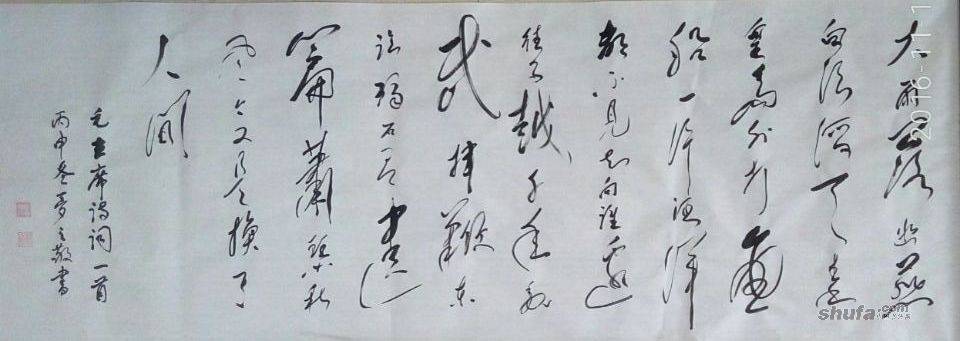 大雨落幽燕
白浪滔天秦
皇岛外打鱼
船一片汪洋
都不见知向谁边
往事越千年魏
武挥鞭东
临碣石有遗
篇萧瑟秋
风今又是换了
人间
毛主席诗词一首
丙申冬梦之敬书
2016-11-1
shufa